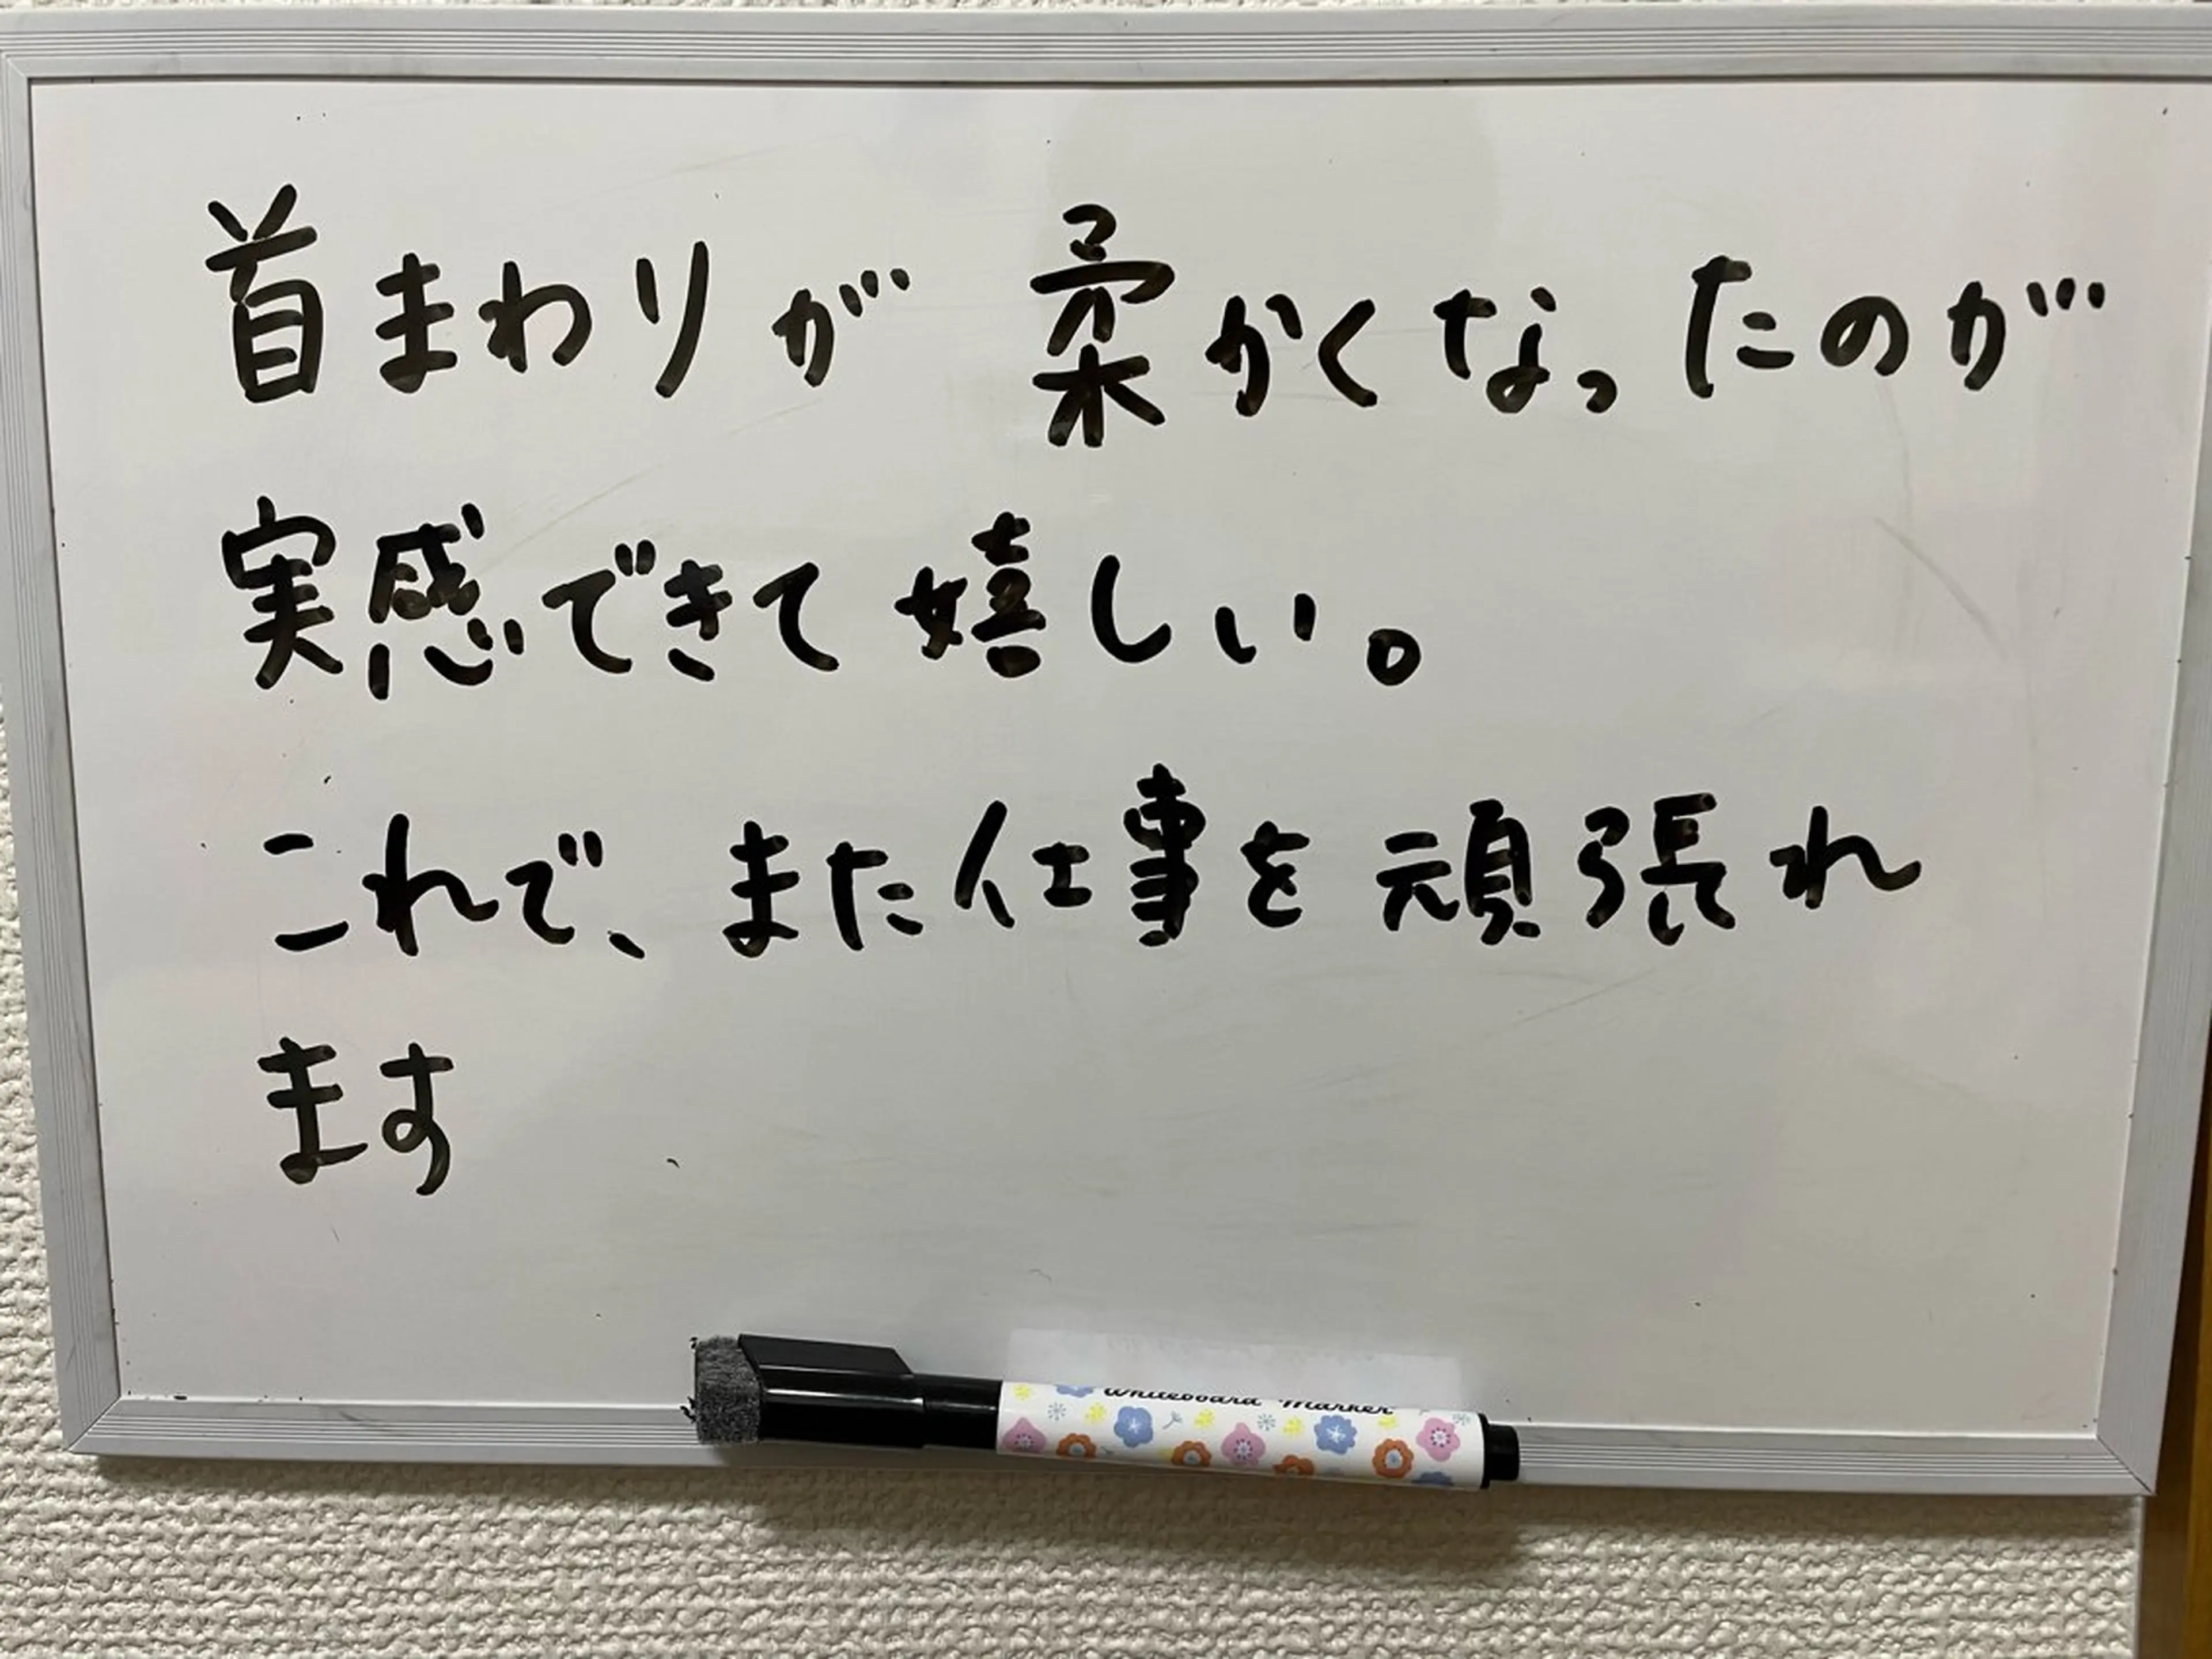 首まわりが 柔かくなったのが
実感できて嬉しい。
これで、また仕事を頑張れ
ます
Whiteboard Marker